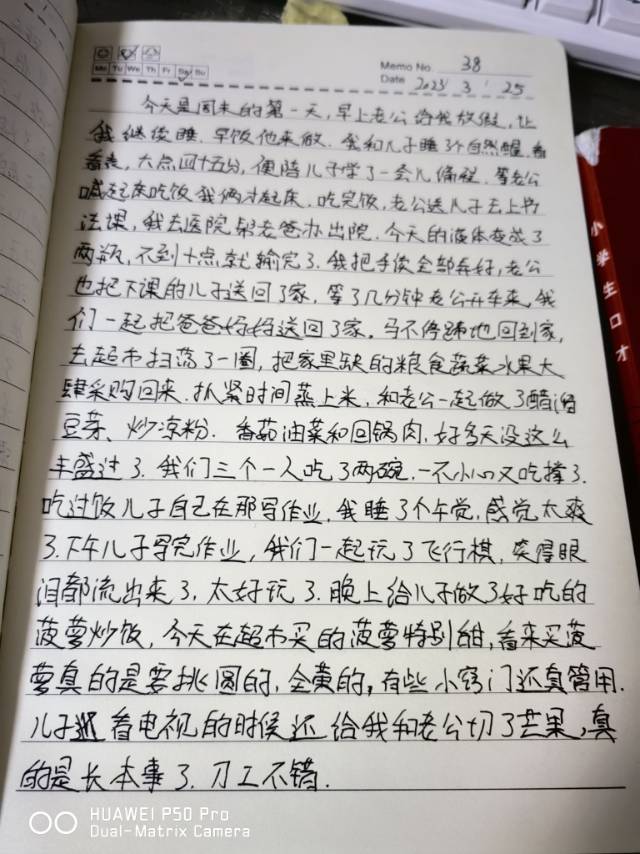 Mo Tu We Th Fr Sa Su
Memo No 38
Date 2023 3 25
今天是周末的第一天,早上老公给我放假,让
我继续睡.早饭他来做.我和儿子睡了个自然醒.看
看表,六点四十五分,便陪儿子学了一会儿编程.等老公
喊起床吃饭我俩才起床.吃完饭,老公送儿子去上书
法课,我去医院帮老爸办出院.今天的液体变成了
两瓶,不到十点就输完了.我把手续全部弄好,老公
也把下课的儿子送回了家,等了几分钟老公开车来,我
们一起把爸爸妈妈送回了家.马不停蹄地回到家,
去超市扫荡了一圈,把家里缺的粮食蔬菜水果大
肆采购回来.扒紧时间蒸上米,和老公一起做了醋溜
豆芽、炒凉粉.香菇油菜和回锅肉.好多天没这么
丰盛过了.我们三个一人吃了两碗.一不小心又吃撑了.
吃过饭儿子自己在那写作业,我睡了个午觉,感觉太爽
了.下午儿子写完作业,我们一起玩了飞行棋,笑得眼
泪都流出来了,太好玩了.晚上给儿子做了好吃的
菠萝炒饭,今天在超市买的菠萝特别甜,看来买菠
萝真的是要挑圆的,全黄的,有些小窍门还真管用.
儿子趁看电视的时候还给我和老公切了芒果,真
的是长本事了.刀工不错.
小学生口才
HUAWEI P50 Pro
Dual-Matrix Camera